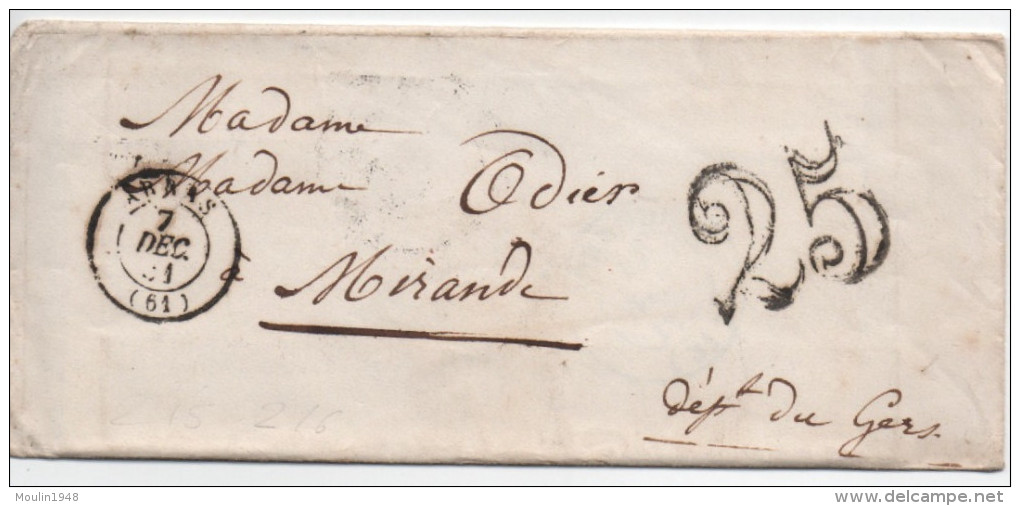 Madame
Madame Odier
à Mirande
25
dépt du Gers
ARRAS
7
DEC.
51
(61)
Moulin1948
www.delcampe.net